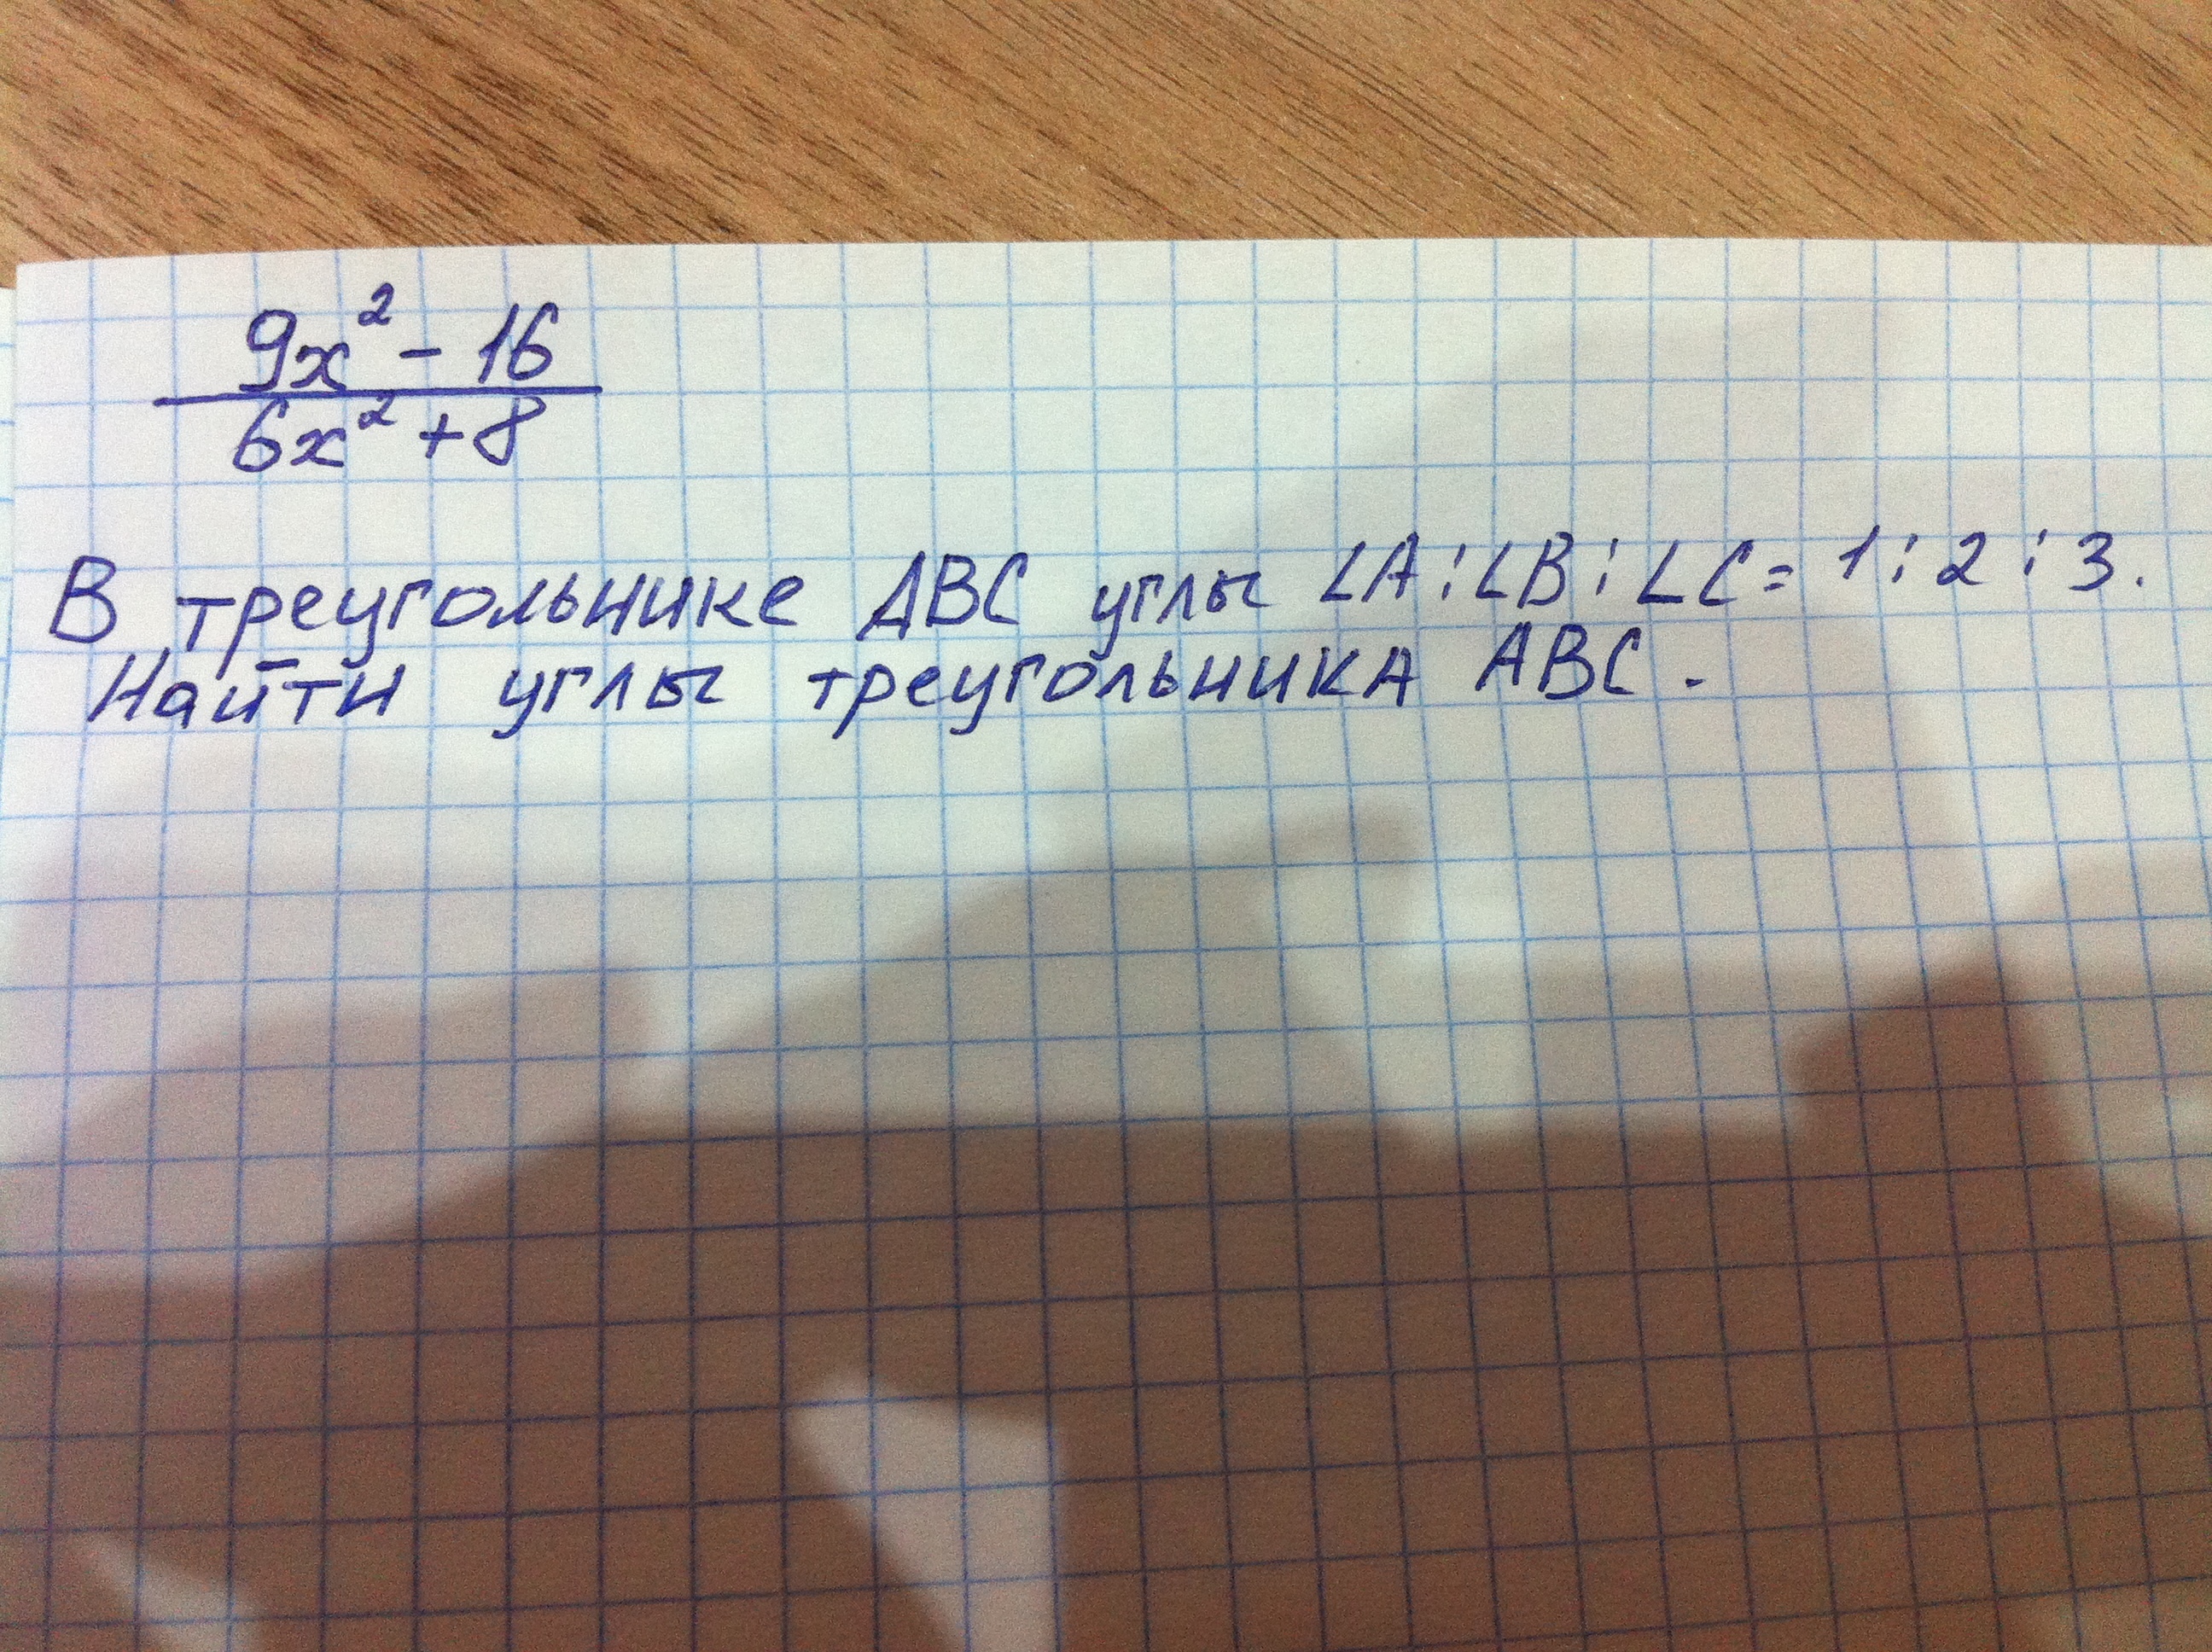 9x² - 16
6x² + 8
В треугольнике ABC углы ∠A:∠B:∠C = 1:2:3.
Найти углы треугольника ABC.